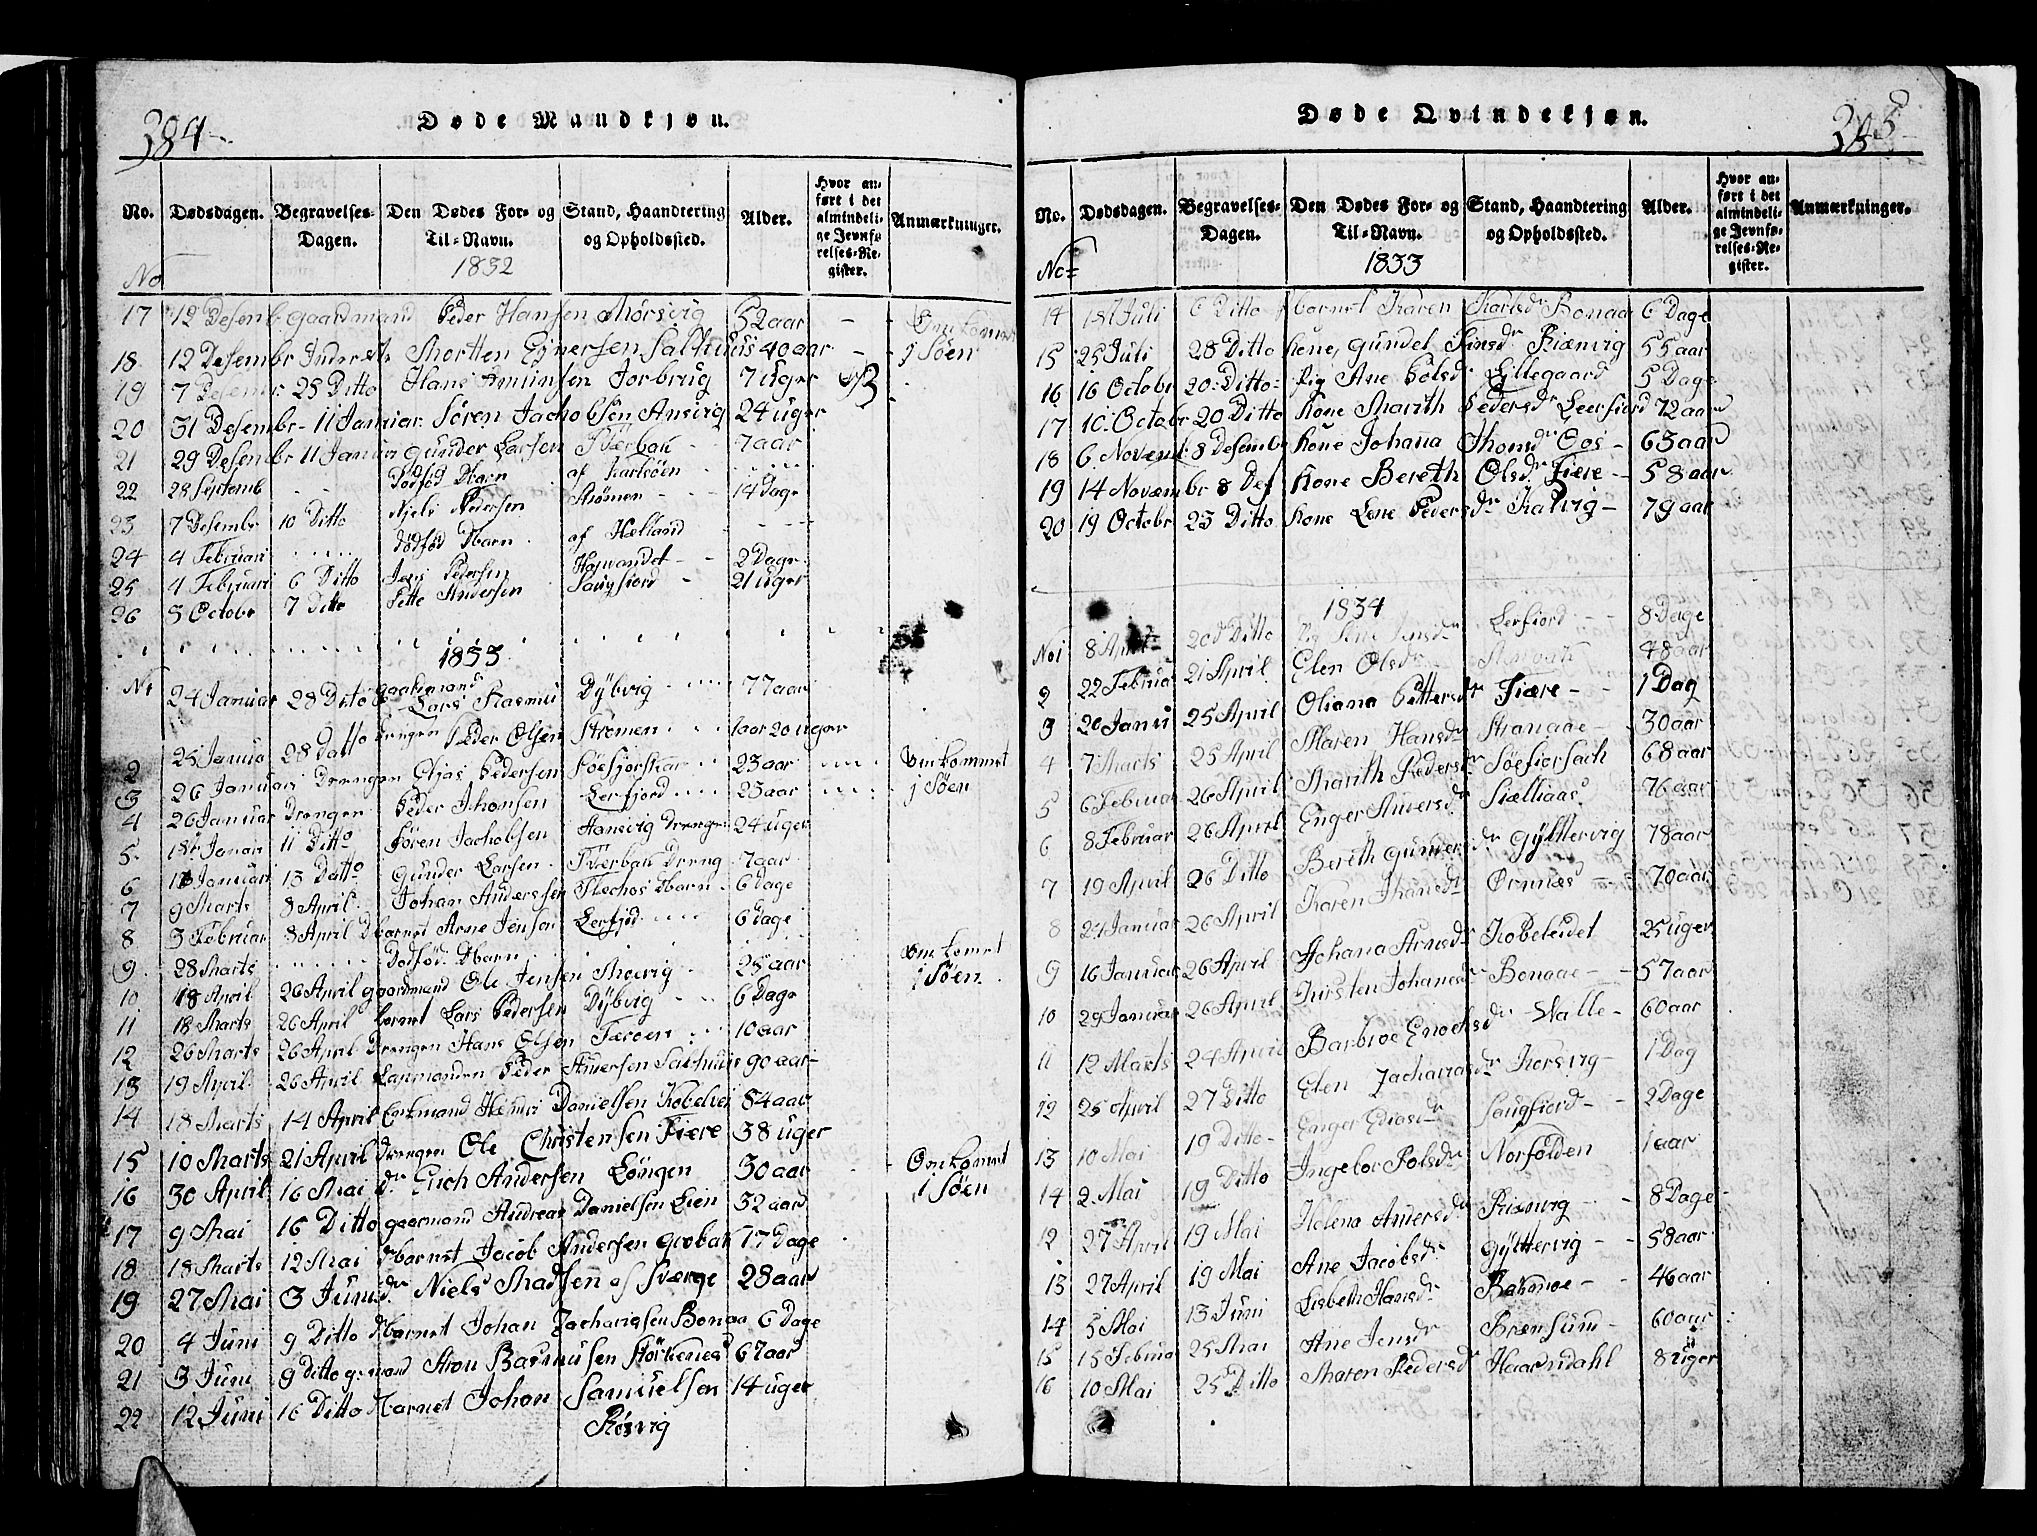 384
Døde Mandkjøn.
No. Dødsdagen. Begravelses-Dagen. Den Dødes For- og Til-Navn. Stand, Haandtering og Opholdssted. Alder. Hvor anført i det almindelige Jevnførelses-Register. Anmærkninger.
No 1832
17 12 Desemb gaardmand Peder Hansen Mørsvig 52 aar - - Omkommet
18 12 Desembr Inderst Morten Ejversen Salthuus 40 aar - - j Søen
19 7 Desembr 25 Ditto Hans Amunsen Torbrug 7 uger
20 31 Desembr - 11 Januar Søren Jachobsen Ansvig 24 uger
21 29 Desembr 11 Januar Gunder Larsen Tverbak 7 aar
22 28 Septemb - - Dødfød Barn af Karlsöen
23 7 Desembr 10 Ditto Njels Pedersen Strömen 14 Dage
24 4 Februari Dödföd Barn af Hælland
25 4 Februari 6 Ditto Jens Pedersen 2 Dage
26 3 Octobr 7 Ditto Pette Andersen Saugfiord 21 uger
1833
N1 24 Januar 28 Dito gaardmand Lars Rasmus Dÿbvig 77 aar
2 25 Janua 28 Datto Drengen Peder Olsen Strömen 1 aar 20 uger
3 26 Januari Drengen Eljas Pedersen 23 aar Omkommet
4 26 Januar Drengen Peder Jhansen Lerfjord 23 aar j Søen
5 Janari 11 Ditto Sören Jachobsen Hansvig Drenge 24 uger
6 Januari 13 Datto Gunder Larsen Tverbak Dreng 7 aar
7 9 Marts 8 April Johan Anderssen Barn 6 Dage
8 3 Februar 8 April Barnet Arne Jensen Lerfjod 6 dage
9 28 Marts Dødfød Barn Omkomet
10 18 April 26 April gaardmand Ole Jensen 25 aar j Søen
11 18 Marts 26 April barnet Lars Pedersen Dÿbvig 6 Dage
12 26 Marts 26 April Drengen Hans Olsen 10 aar
13 19 April 26 April Lapmanden Peder Andersen Salthuus 90 aar
14 18 Marts 14 April Danielsen 54 aar
15 10 Marts 21 April Drengen Ole Christensen Fiære 38 uger
16 30 April 16 Mai do Erich Andersen Löngen 30 aar - Omkomet
17 9 Mai 16 Ditto gaarmand Andreas Danielsen Lien 32 aar i Søen
18 18 Marts 12 Mai Barnet Jacob Andersen 17 Dage
19 27 Mai 3 Juni dr Niels Madsen af Sværge 28 aar
20 4 Juni 9 Ditto Barnet Johan Zachariasen Bonaa 6 Dage
21 3 Juni 9 Ditto Aron Rasmusen Störkenes 67 aar
22 12 Juni 16 Ditto Barnet Johan Samuelsen 14 uger
Rösvig
385
Døde Qvindekjøn.
No. Dødsdagen. Begravelses-Dagen. Den Dødes For- og Til-Navn. Stand, Haandtering og Opholdssted. Alder. Hvor anført i det almindelige Jevnførelses-Register. Anmærkninger.
No 1833
14 1st Juli 6 Ditto barnet Karen Karlsdr Bonaa 6 Dage
15 25 Juli 28 Ditto kone, Gundel 55 aar
16 16 Octobr 20 Ditto Pig Ane Polsdr Lillegaard 5 Dage
17 10 Octobr 20 Ditto Kone Marith Pedersdr Leerfiord 72 aar
18 6 Novemb 8 Desembr Kone Johana Thomsdr Sos - 63 aar
19 14 Novæmbr 8 Des Kone Bereth Olsdr Fiære - 58 aar
20 19 Octobr 23 Ditto Kone Lene Pedersdr Kalvig - 79 aar
1834
No 1 8 April 20d Ditto Pig Lene Jensdr Lerfiord - - 8 Dage
2 22 Februa 21 April Elen Olsdr 48 aar
3 20 Janu 25 April Oliana Pettersdr Fiære - - 1 Dag
4 7 Marts 25 April Maren Hansdr Stranaae - 30 aar
5 6 Februar 26 April Marith Pedersdr 68 aar
6 8 Februar 26 April Enger Andersdr 76 aar
7 19 April 26 Ditto Bereth Gundersdr Gÿlttervig 78 aar
8 24 Januar 26 April Karen Ørnnæs - 70 aar
9 16 Januar 26 April Johana Arnsdr Kobeleidet 25 uger
10 29 Januar 26 April Kirsten Johansdr Bonaae - 57 aar
11 12 Marts 24 April Barbroe Enochsdr Valle - 60 aar
12 25 April 27 Ditto Elen Zachariasdr Korsvig - 1 Dag
13 10 Mai 19 Ditto - Enger Saugfiord - 2 Dage
14 2 Mai 19 Ditto Ingebor Polsdr Norfolden 1 aar
12 27 April 19 Mai Helena Andersdr 8 Dage
13 27 April 19 Mai Ane Jacobsdr Gÿlttervig - - 58 aar
14 5 Mai 13 Juni Lisbeth Hansdr 46 aar
15 15 Februa 25 Mai Ane Jensdr 60 aar
16 10 Mai 25 Ditto Maren Pedersdr Haarndahl 8 uger